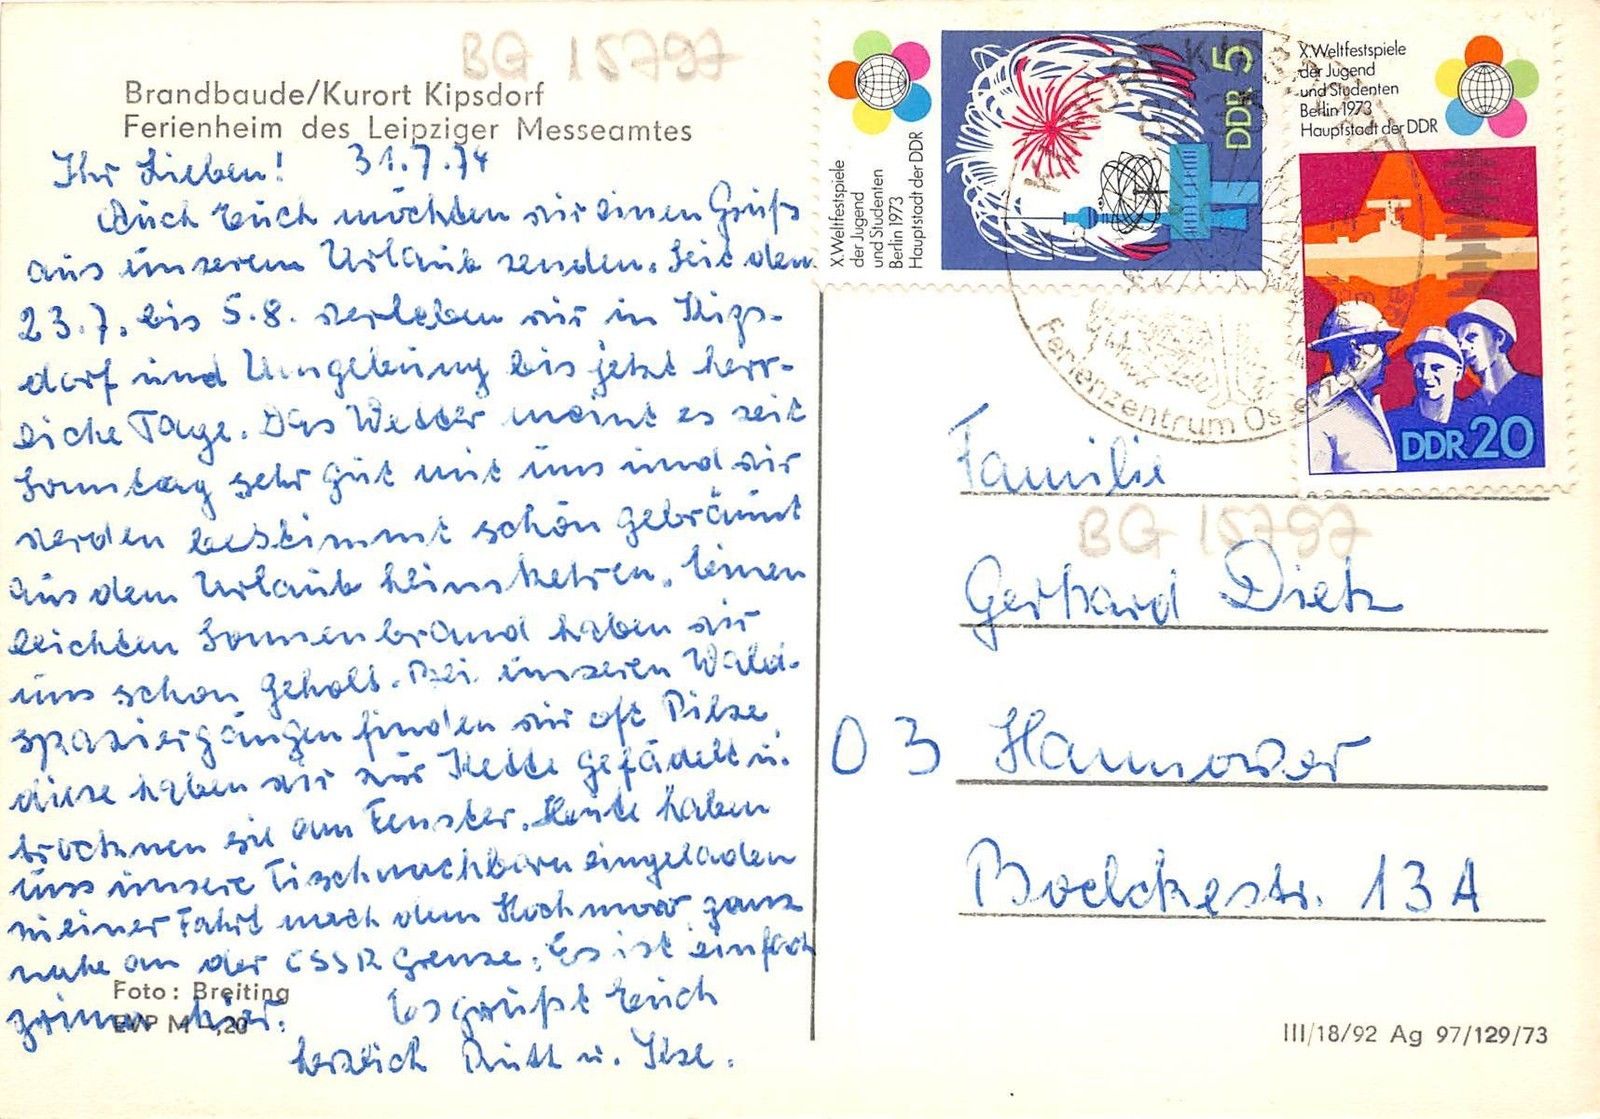 BG 15797
Brandbaude/Kurort Kipsdorf
Ferienheim des Leipziger Messeamtes
Ihr Lieben! 31.7.74
Auch Euch möchten wir einen Gruß
aus unserem Urlaub senden. Seit dem
23.7. bis 5.8. verleben wir in Kips-
dorf und Umgebung bis jetzt herr-
liche Tage. Das Wetter meint es seit
Sonntag sehr gut mit uns und wir
werden bestimmt schön gebräunt
aus dem Urlaub heimkehren. Einen
leichten Sonnenbrand haben wir
uns schon geholt. Bei unseren Wald-
spaziergängen finden wir oft Pilze
diese haben wir zur Kette gefädelt u.
trocknen sie am Fenster. Heute haben
uns unsere Tischnachbarn eingeladen
zu einer Fahrt nach dem Hochmoor ganz
nahe an der CSSR Grenze. Es ist einfach
prima hier. Es grüßt Euch
herzlich Ruth u. Ilse.
Foto: Breiting
EVP M -,20
X.Weltfestspiele
der Jugend
und Studenten
Berlin 1973
Hauptstadt der DDR
DDR 5
X.Weltfestspiele
der Jugend
und Studenten
Berlin 1973
Hauptstadt der DDR
DDR 20
Ferienzentrum Osterzgeb
Familie
BG 15797
Gerhard Dietz
03 Hannover
Boelckestr. 13A
III/18/92 Ag 97/129/73